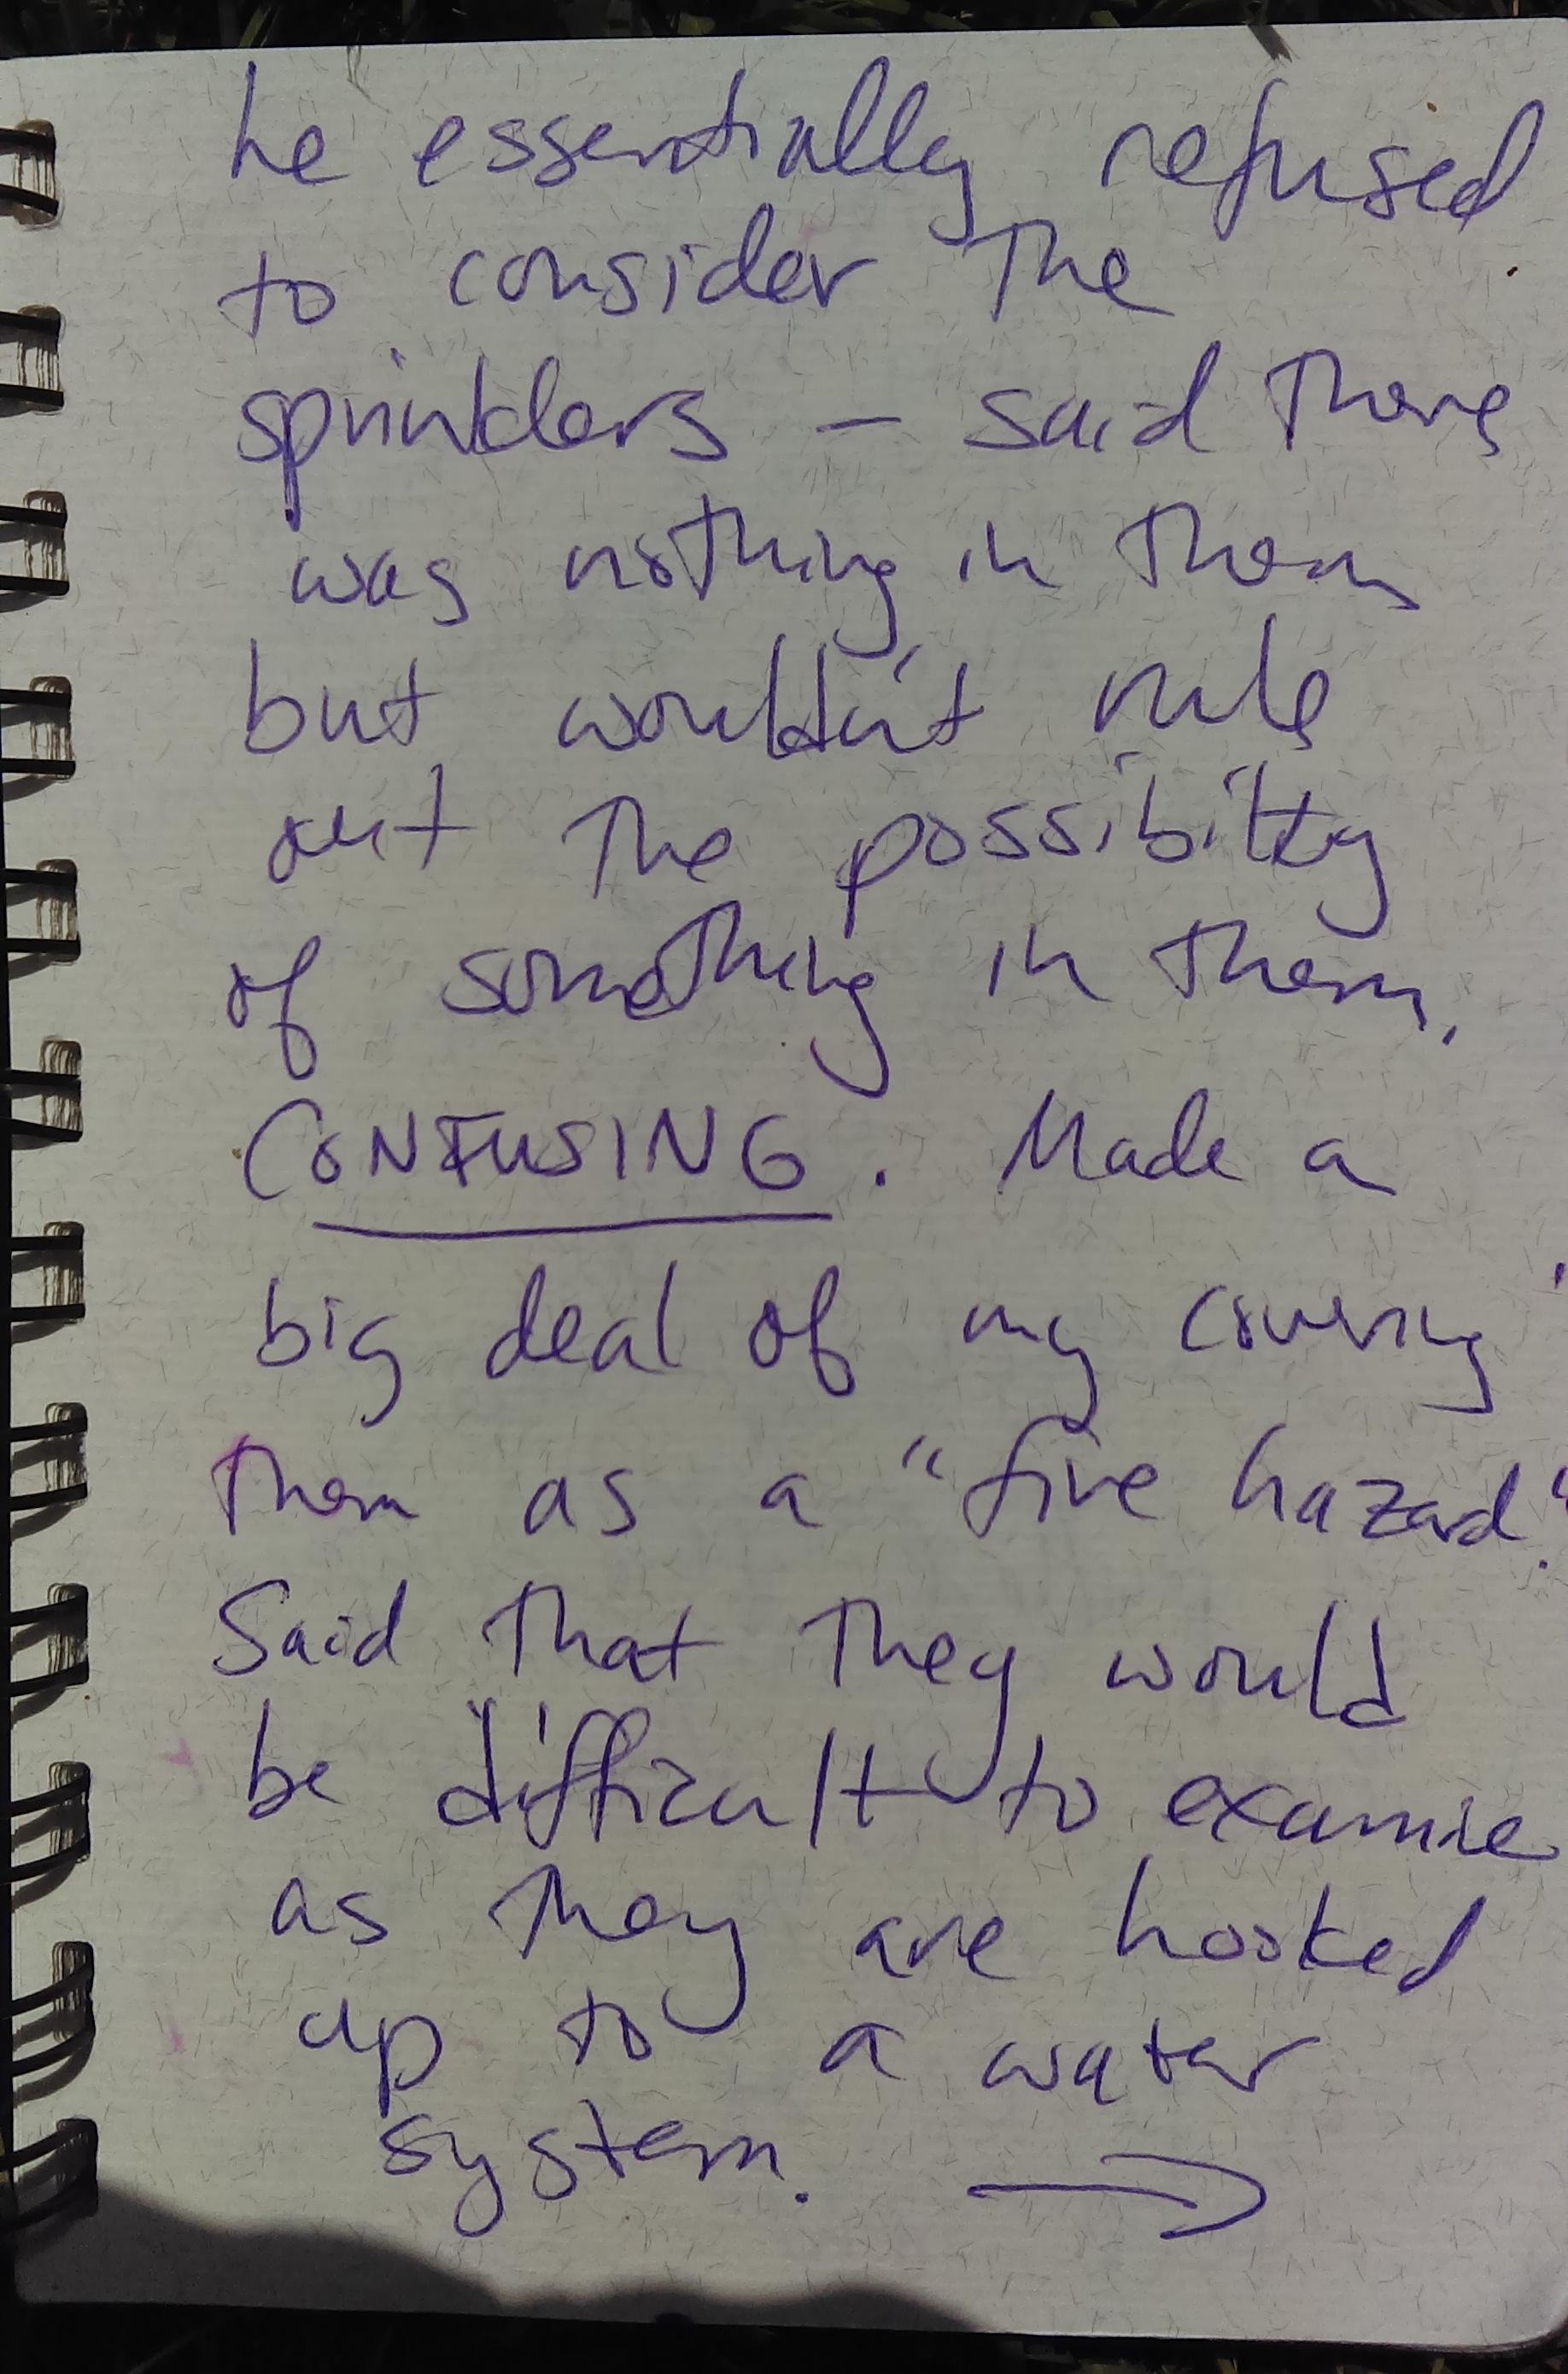 he essentially refused
to consider the
sprinklers – said there
was nothing in them
but wouldn't rule
out the possibility
of something in them.
CONFUSING. Made a
big deal of my covering
them as a "fire hazard."
Said that they would
be difficult to examine
as they are hooked
up to a water
system. →